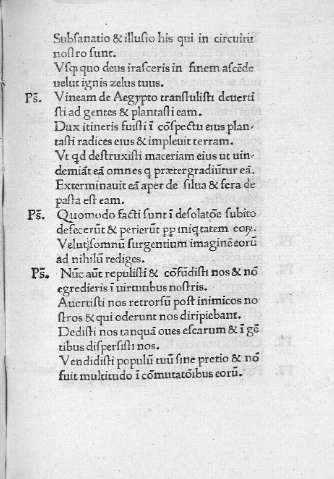 Subsanatio & illusio his qui in circuitu
nostro sunt.
Vsqꝫ quo deus irasceris in finem ascēde
uelut ignis zelus tuus.
Ps̄. Vineam de Aegypto transtulisti deuerti
sti ad gentes & plantasti eam.
Dux itineris fuisti ī cōspectu eius plan-
tasti radices eius & impleuit terram.
Vt qd destruxisti maceriam eius ut uin-
demiāt eā omnes q prætergrediūtur eā.
Exterminauit eā aper de silua & fera de
pasta est eam.
Ps̄. Quomodo facti sunt ī desolatōe subito
defecerūt & perierūt pp iniqtatem eoꝝ.
Velut somnū surgentium imaginē eorū
ad nihilū rediges.
Ps̄. Nūc aūt repulisti & cōfūdisti nos & nō
egredieris ī uirtutibus nostris.
Auertisti nos retrorsū post inimicos no
stros & qui oderunt nos diripiebant.
Dedisti nos tanquā oues escarum & ī gē
tibus dispersisti nos.
Vendidisti populū tuū sine pretio & nō
fuit multitudo ī cōmutatōibus eorū.